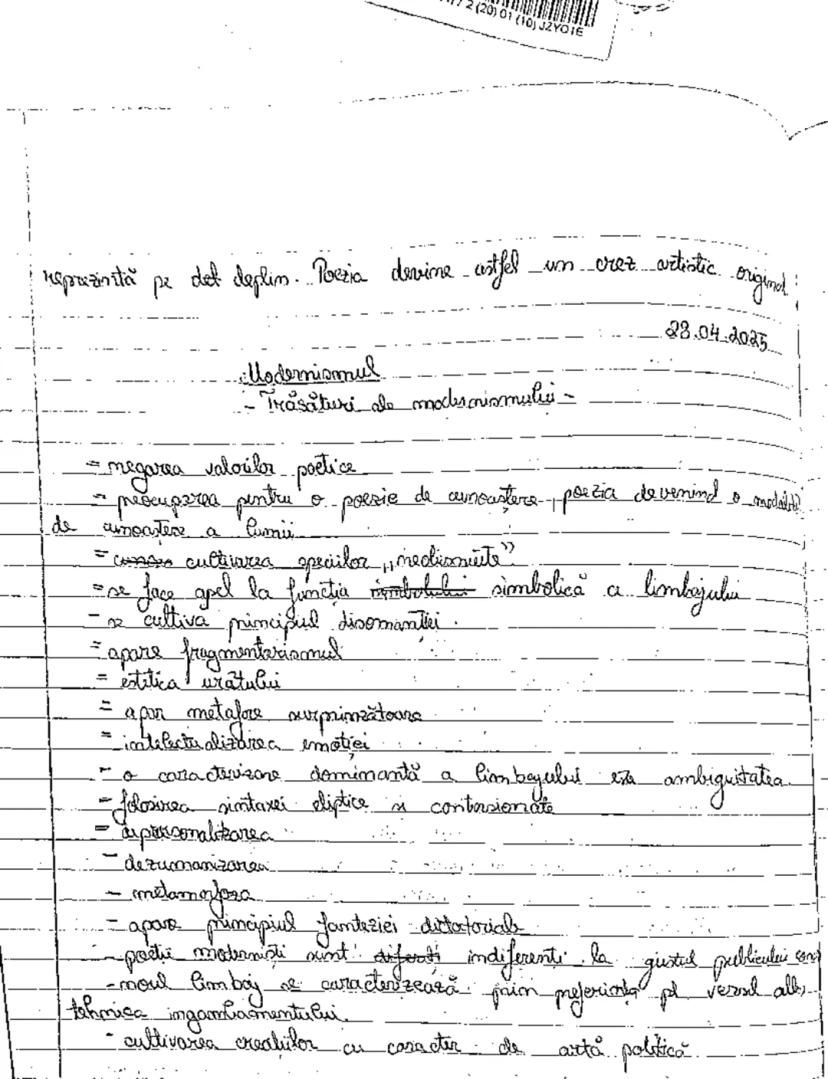 2 (20) 01 (10) J2YO1E
reprezintă pe det deplin. Poezia devine astfel un crez artistic original
23.04.2025
Modernismul
- Trăsături ale modernismului -
- negarea valorilor poetice
- preocuparea pentru o poezie de cunoaștere, poezia devenind o modalit
de cunoaștere a lumii
- cultivarea speciilor „neobișnuite”
- se face apel la funcția simbolului simbolică a limbajului
- se cultiva principiul disonanței.
- apare fragmentarismul
- estetica urâtului
- apar metafore surprinzătoare
- intelectualizarea emoției
- o caracterizare dominantă a limbajului este ambiguitatea
- folosirea sintaxei eliptice și contorsionate
- depersonalizarea
- dezumanizarea
- metamorfoza
- apare principiul fanteziei dictatoriale
- poeții moderniști sunt diferiți indiferenți la gustul publicului
- noul limbaj se caracterizează prin preferința pt versul alb,
tehnica ingambamentului.
- cultivarea creațiilor cu caracter de artă poetică